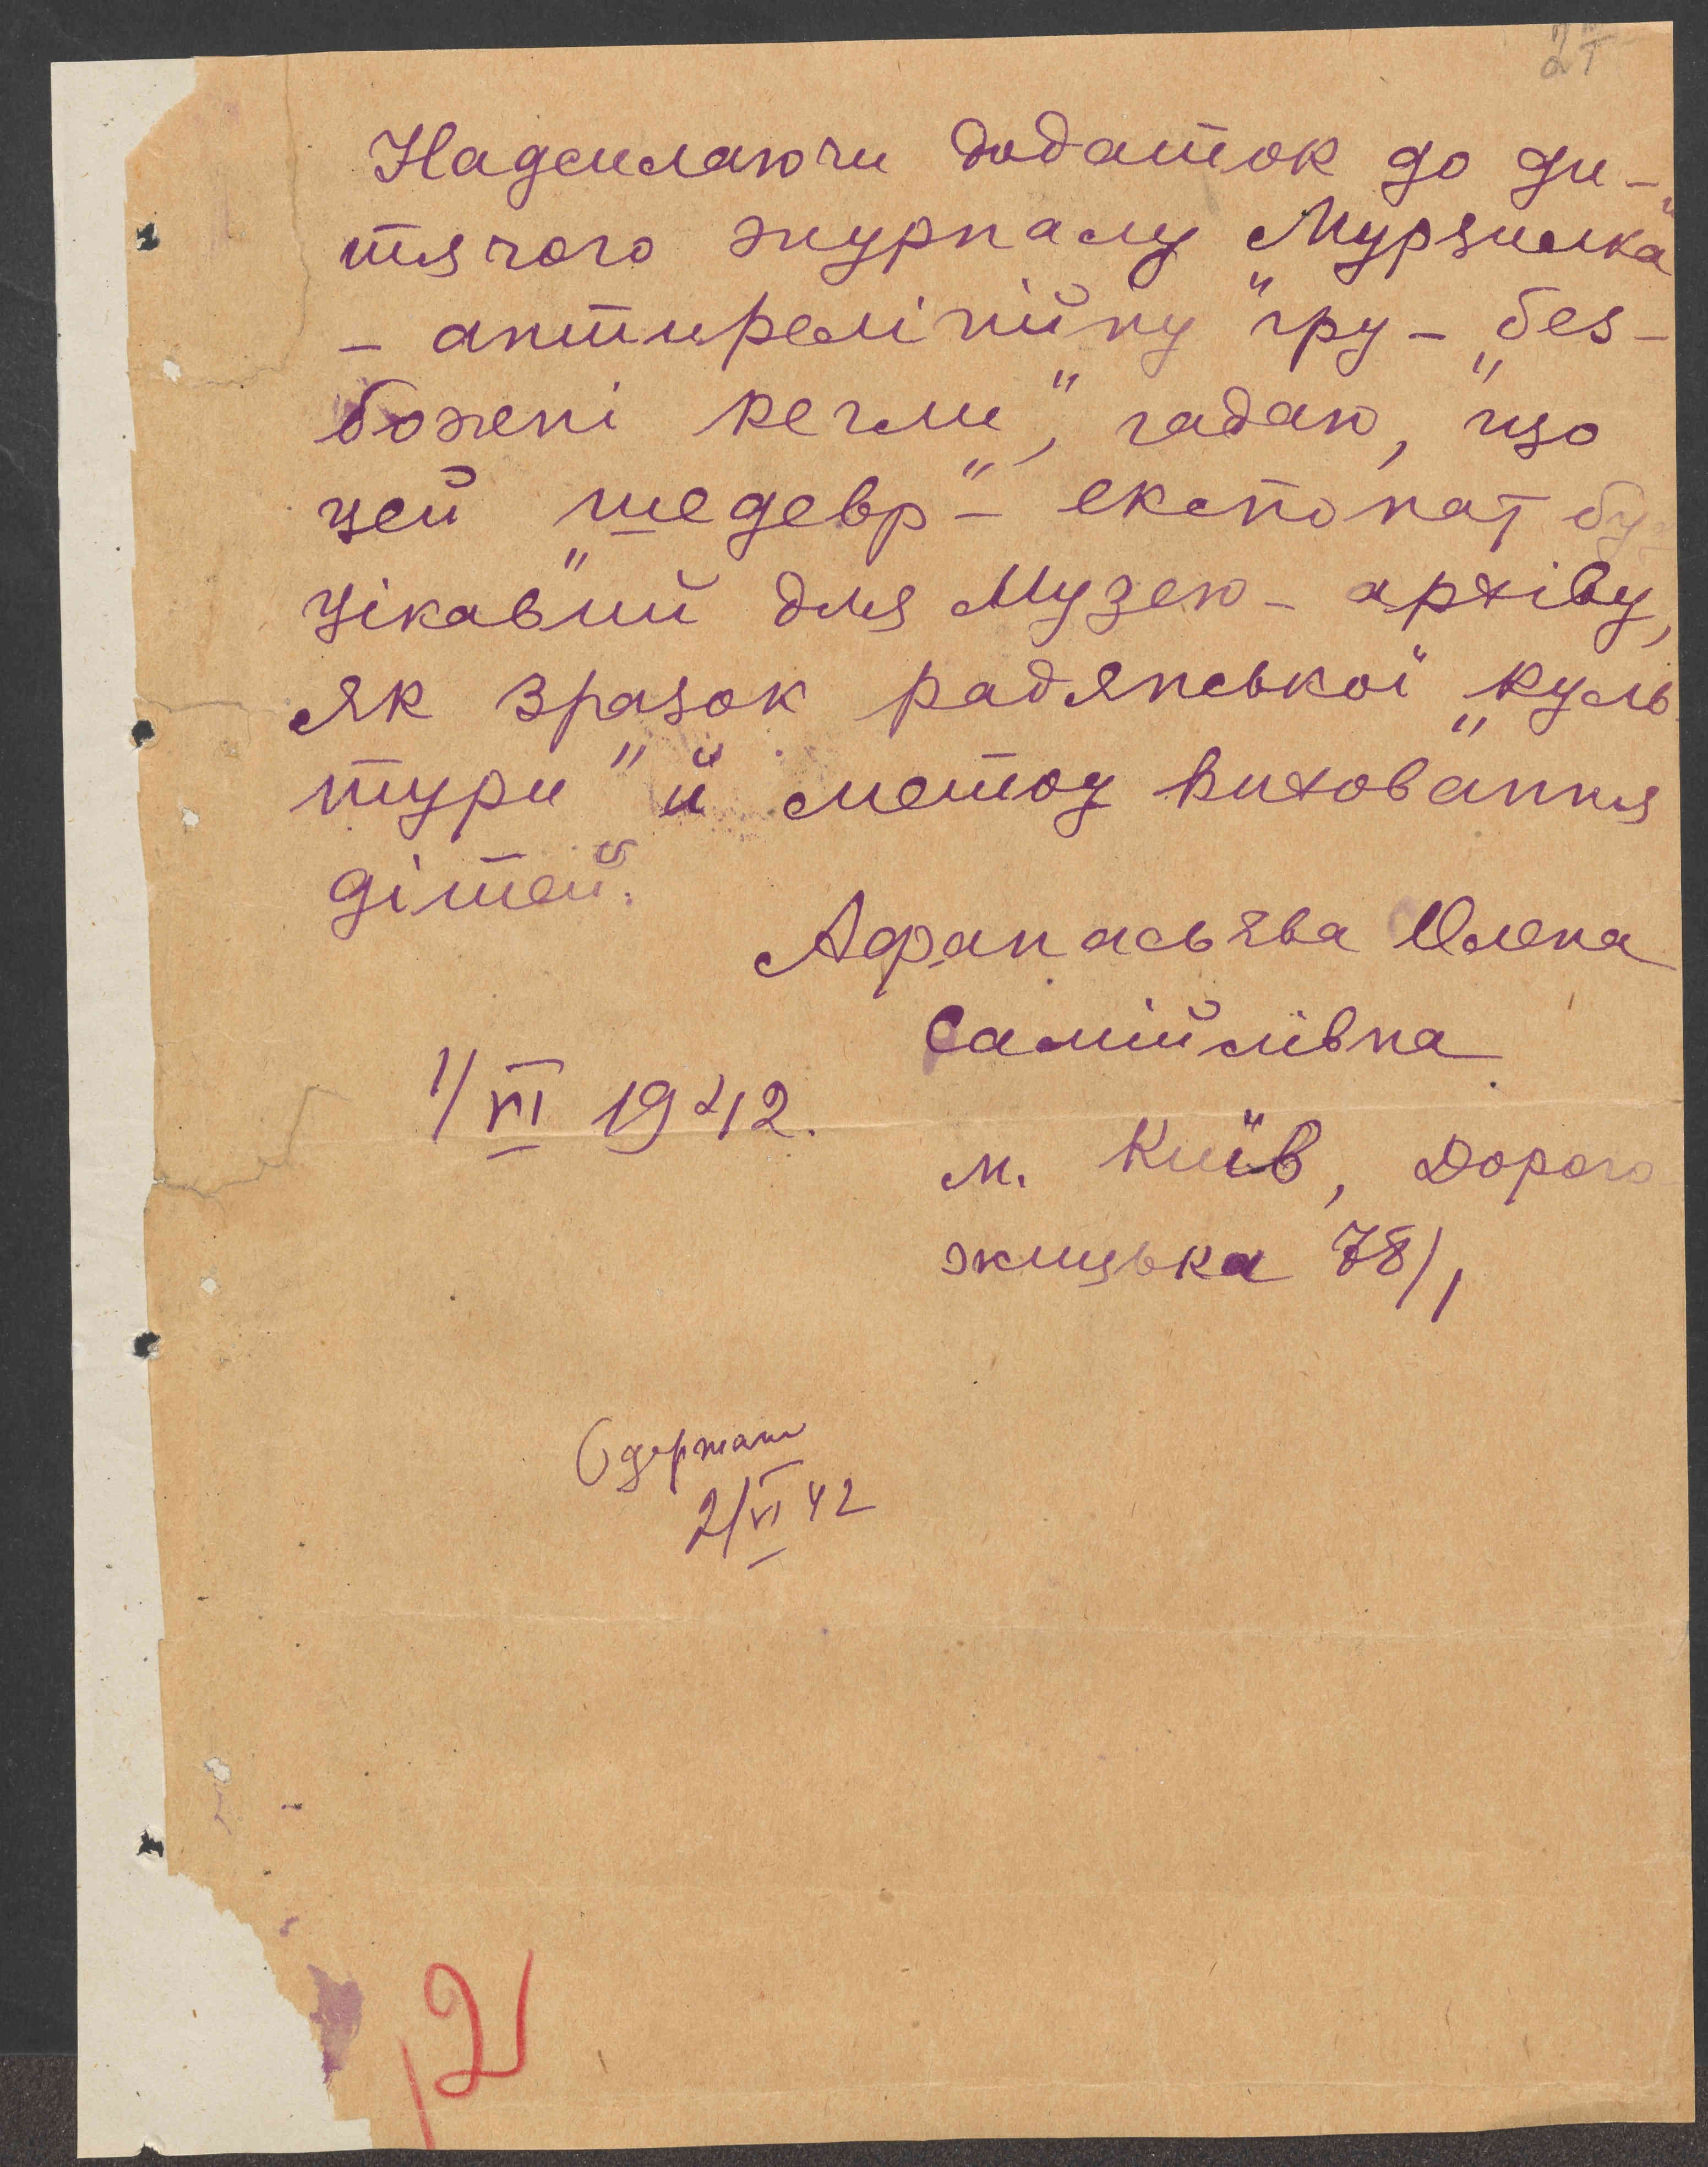 Надсилаючи додаток до ди-
тячого журналу „Мурзилка"
- антирелігійну гру - „без-
божні кеглі", гадаю, що
цей „шедевр" - експонат бу
цікавий для Музею - архіву,
як зразок радянської „куль
тури" й метод виховання
дітей.
Афанасьєва Олена
Самійлівна
1/VI 1942.
м. Київ, Дорого
жицька 78/1
Одержано
2/VI 42
12